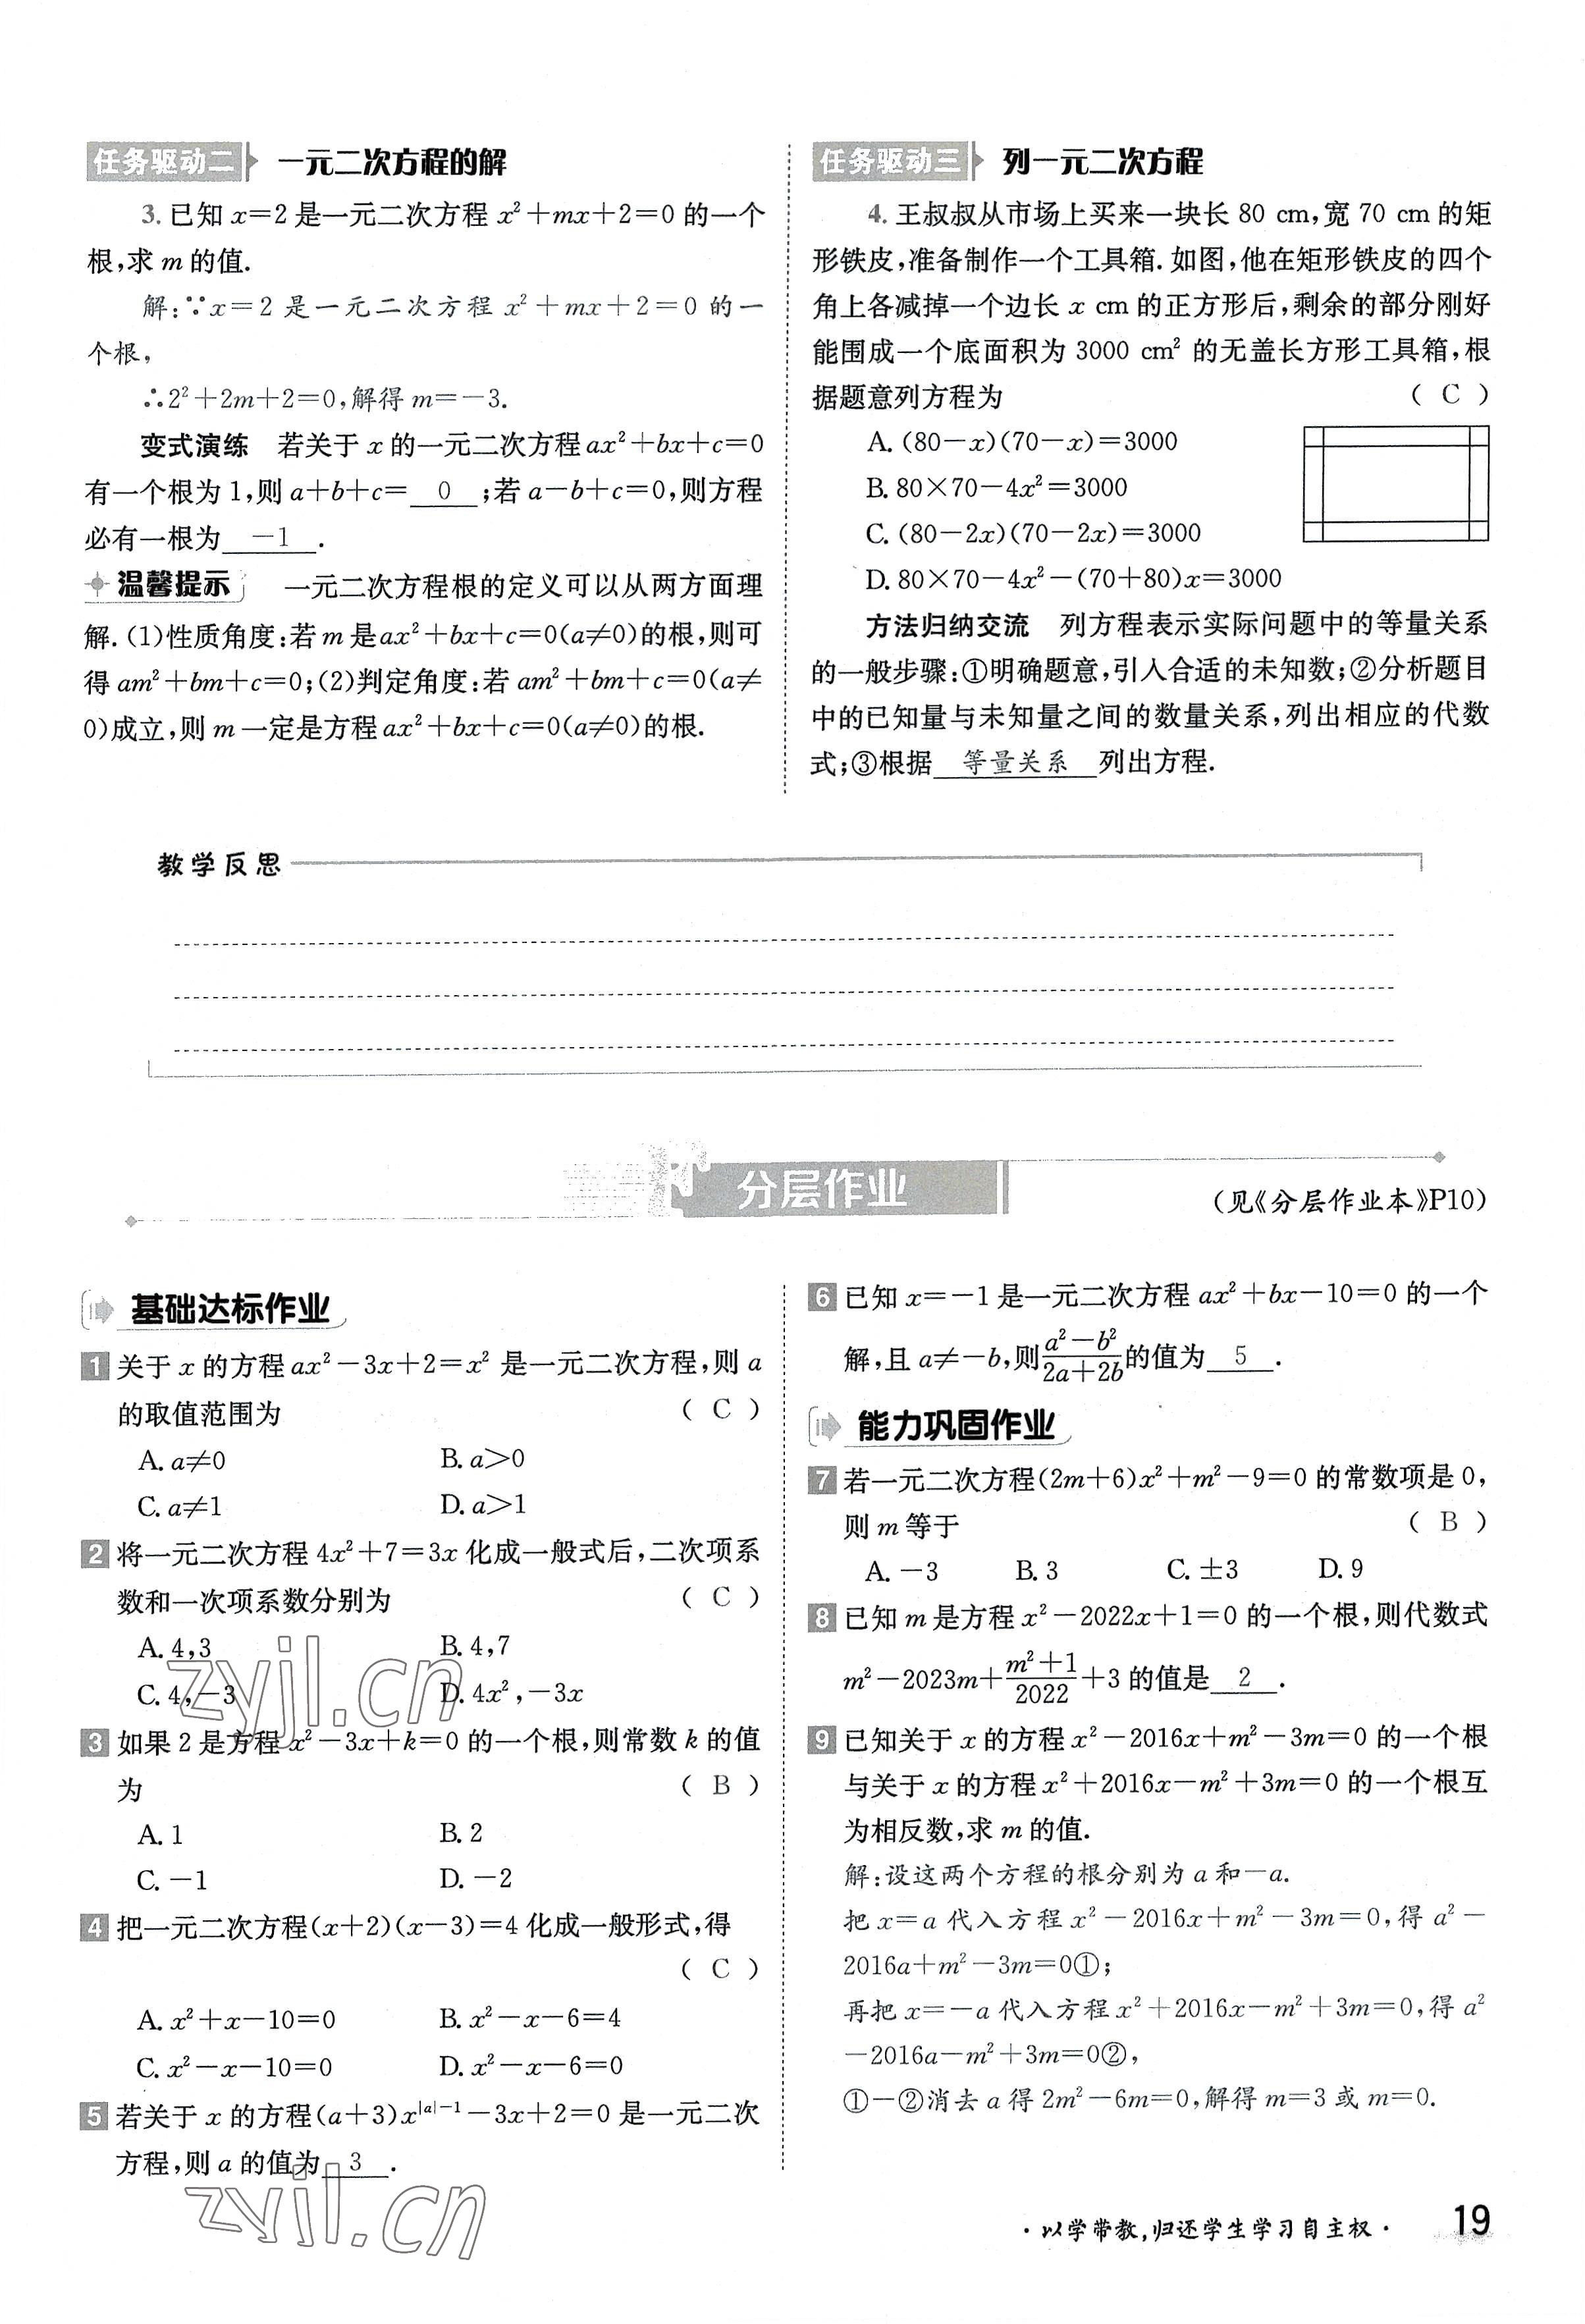 任务驱动二 一元二次方程的解
3. 已知 x=2 是一元二次方程 x²+mx+2=0 的一个
根,求 m 的值.
解:∵x=2 是一元二次方程 x²+mx+2=0 的一
个根,
∴2²+2m+2=0,解得 m=-3.
变式演练 若关于 x 的一元二次方程 ax²+bx+c=0
有一个根为 1,则 a+b+c= 0 ;若 a-b+c=0,则方程
必有一根为 -1 .
温馨提示 一元二次方程根的定义可以从两方面理
解.(1)性质角度:若 m 是 ax²+bx+c=0(a≠0)的根,则可
得 am²+bm+c=0;(2)判定角度:若 am²+bm+c=0(a≠
0)成立,则 m 一定是方程 ax²+bx+c=0(a≠0)的根.
任务驱动三 列一元二次方程
4. 王叔叔从市场上买来一块长 80 cm,宽 70 cm 的矩
形铁皮,准备制作一个工具箱.如图,他在矩形铁皮的四个
角上各减掉一个边长 x cm 的正方形后,剩余的部分刚好
能围成一个底面积为 3000 cm² 的无盖长方形工具箱,根
据题意列方程为 ( C )
A. (80-x)(70-x)=3000
B. 80×70-4x²=3000
C. (80-2x)(70-2x)=3000
D. 80×70-4x²-(70+80)x=3000
方法归纳交流 列方程表示实际问题中的等量关系
的一般步骤:①明确题意,引入合适的未知数;②分析题目
中的已知量与未知量之间的数量关系,列出相应的代数
式;③根据 等量关系 列出方程.
教学反思
分层作业
(见《分层作业本》P10)
基础达标作业
1 关于 x 的方程 ax²-3x+2=x² 是一元二次方程,则 a
的取值范围为 ( C )
A. a≠0 B. a>0
C. a≠1 D. a>1
2 将一元二次方程 4x²+7=3x 化成一般式后,二次项系
数和一次项系数分别为 ( C )
A. 4,3 B. 4,7
C. 4,-3 D. 4x²,-3x
3 如果 2 是方程 x²-3x+k=0 的一个根,则常数 k 的值
为 ( B )
A. 1 B. 2
C. -1 D. -2
4 把一元二次方程(x+2)(x-3)=4 化成一般形式,得
( C )
A. x²+x-10=0 B. x²-x-6=4
C. x²-x-10=0 D. x²-x-6=0
5 若关于 x 的方程(a+3)x^{|a|-1}-3x+2=0 是一元二次
方程,则 a 的值为 3 .
6 已知 x=-1 是一元二次方程 ax²+bx-10=0 的一个
解,且 a≠-b,则 (a²-b²)/(2a+2b) 的值为 5 .
能力巩固作业
7 若一元二次方程(2m+6)x²+m²-9=0 的常数项是 0,
则 m 等于 ( B )
A. -3 B. 3 C. ±3 D. 9
8 已知 m 是方程 x²-2022x+1=0 的一个根,则代数式
m²-2023m+(m²+1)/2022+3 的值是 2 .
9 已知关于 x 的方程 x²-2016x+m²-3m=0 的一个根
与关于 x 的方程 x²+2016x-m²+3m=0 的一个根互
为相反数,求 m 的值.
解:设这两个方程的根分别为 a 和-a.
把 x=a 代入方程 x²-2016x+m²-3m=0,得 a²-
2016a+m²-3m=0①;
再把 x=-a 代入方程 x²+2016x-m²+3m=0,得 a²
-2016a-m²+3m=0②,
①-②消去 a 得 2m²-6m=0,解得 m=3 或 m=0.
zyjl.cn
zyjl.cn
·以学带教,归还学生学习自主权· 19